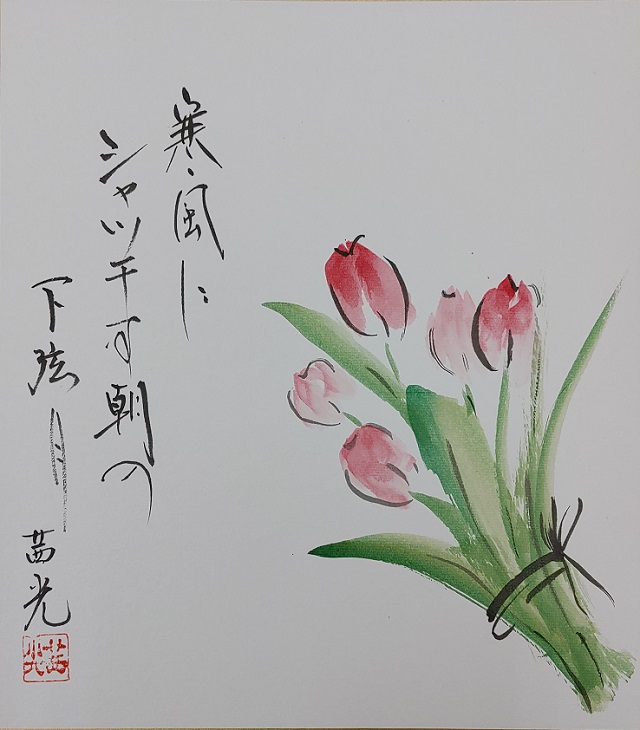 寒風に
シャツ干す朝の
下弦月
茜光
茜光